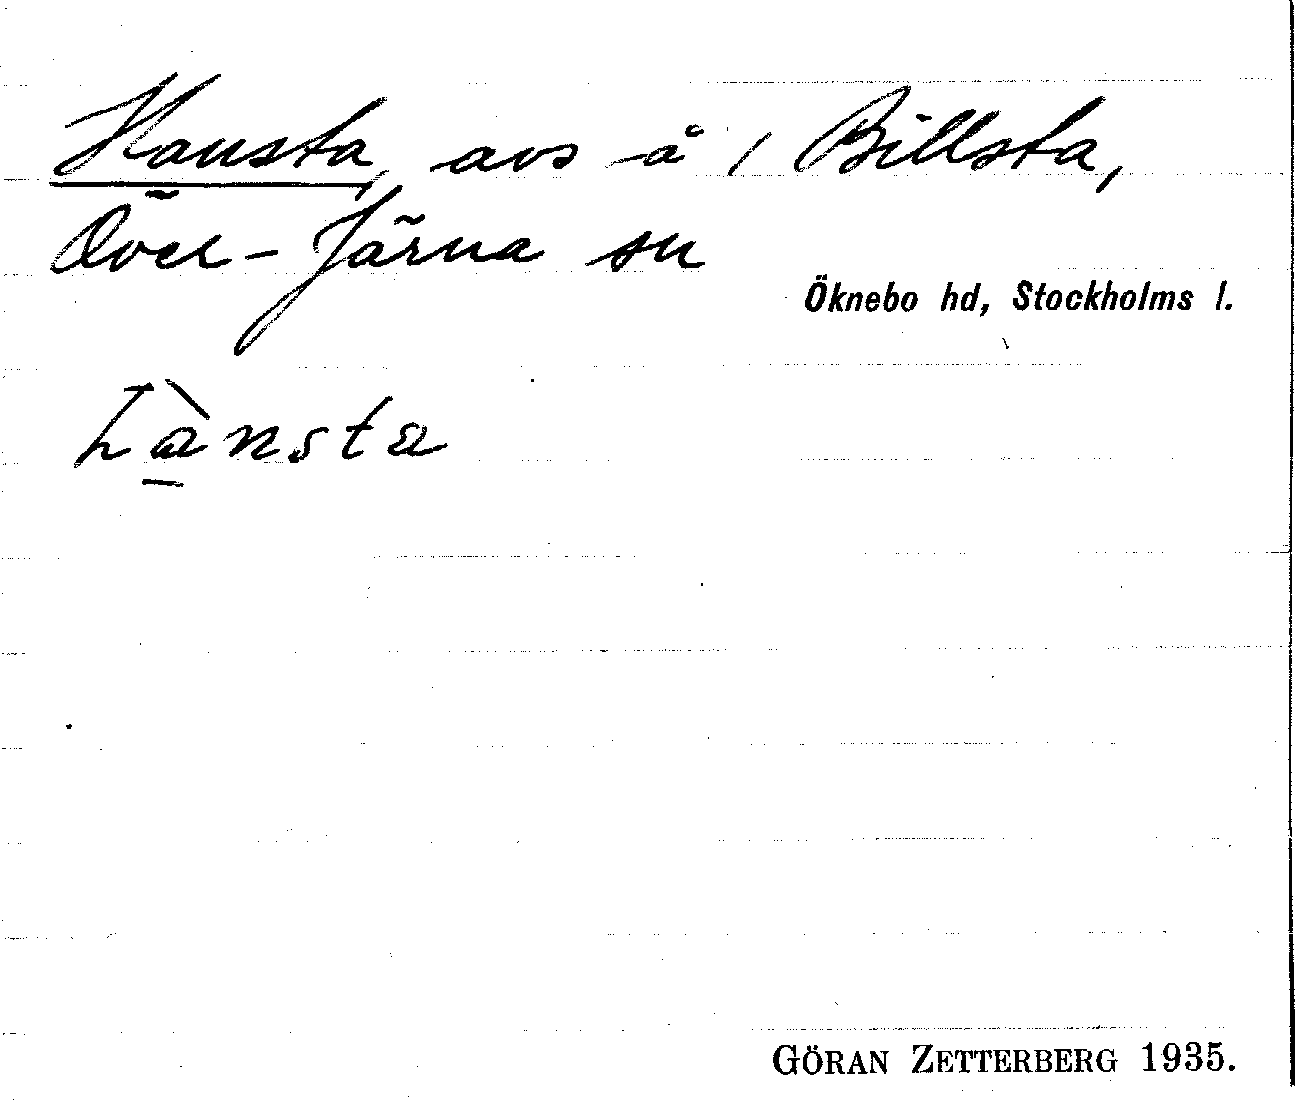 Hansta, avs å 1 Billsta,
Över-Järna sn
Öknebo hd, Stockholms l.
hànsta
GÖRAN ZETTERBERG 1935.